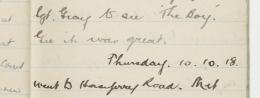 Sgt. Gray to see 'The Boy.'
Gee it was great.
Thursday. 10. 10. 18.
went to Horseferry Road. Met